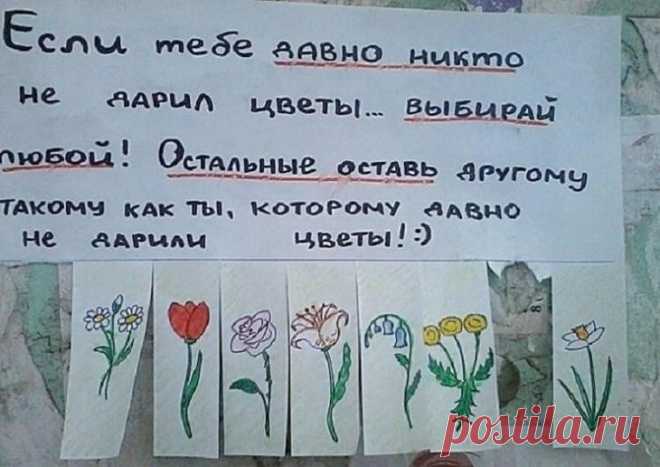 Если тебе давно никто
не дарил цветы... выбирай
любой! Остальные оставь другому
такому как ты, которому давно
не дарили цветы! :)
postila.ru